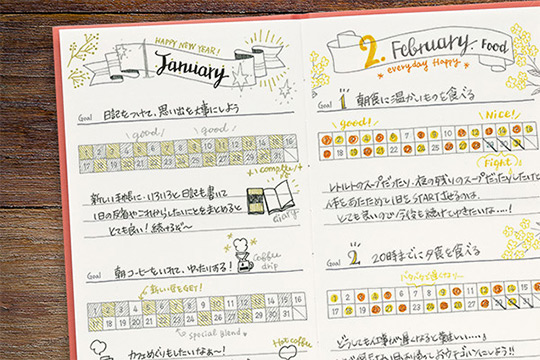 HAPPY NEW YEAR!
January
Goal 日記をつけて、思い出を大事にしよう
good! good!
1 2 3 4 5 6 7 8 9 10 11 12 13 14 15 16
17 18 19 20 21 22 23 24 25 26 27 28 29 30 31
complete!
新しい手帳に、いろいろと日記も書いて
1日の反省やこれからしたいことをまとめると
とても良い!続けるぞ〜
diary
coffee
drip
Goal 朝コーヒーをいれて、ゆったりする!
新しい豆をGET!
1 2 3 4 5 6 7 8 9 10 11 12 13 14 15 16
17 18 19 20 21 22 23 24 25 26 27 28 29 30 31
special blend
Hot coffee
カフェめぐりもしたいなぁ〜!
2. February - Food
everyday Happy
Goal 1 朝食に温かいものを食べる
good! Nice!
1 2 3 4 5 6 7 8 9 10 11 12 13 14 15 16
17 18 19 20 21 22 23 24 25 26 27 28 29 30 31
Fight
レトルトのスープだったり、夜の残りのスープだったりしたいけど
体をあたためて1日をSTARTさせるのは、
とても良いので今後も続けていきたいな…!
Goal 2 20時までに夕食を食べる
1 2 3 4 5 6 7 8 9 10 11 12 13 14 15 16
17 18 19 20 21 22 23 24 25 26 27 28 29 30 31